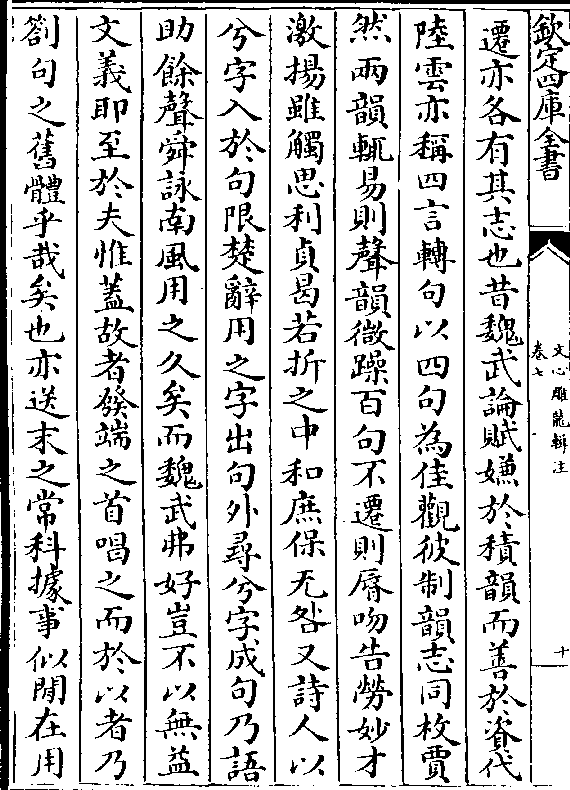 欽定四庫全書
文心雕龍輯注
卷七
十
遷亦各有其志也昔魏武論賦嫌於積韻而善於資代
陸雲亦稱四言轉句以四句為佳觀彼制韻志同枚賈
然兩韻輒易則聲韻微躁百句不遷則脣吻告勞妙才
激揚雖觸思利貞曷若折之中和庶保无咎又詩人以
兮字入於句限楚辭用之字出句外尋兮字成句乃語
助餘聲舜詠南風用之久矣而魏武弗好豈不以無益
文義耶至於夫惟蓋故者發端之首唱之而於以者乃
劄句之舊體乎哉矣也亦送末之常科據事似閒在用